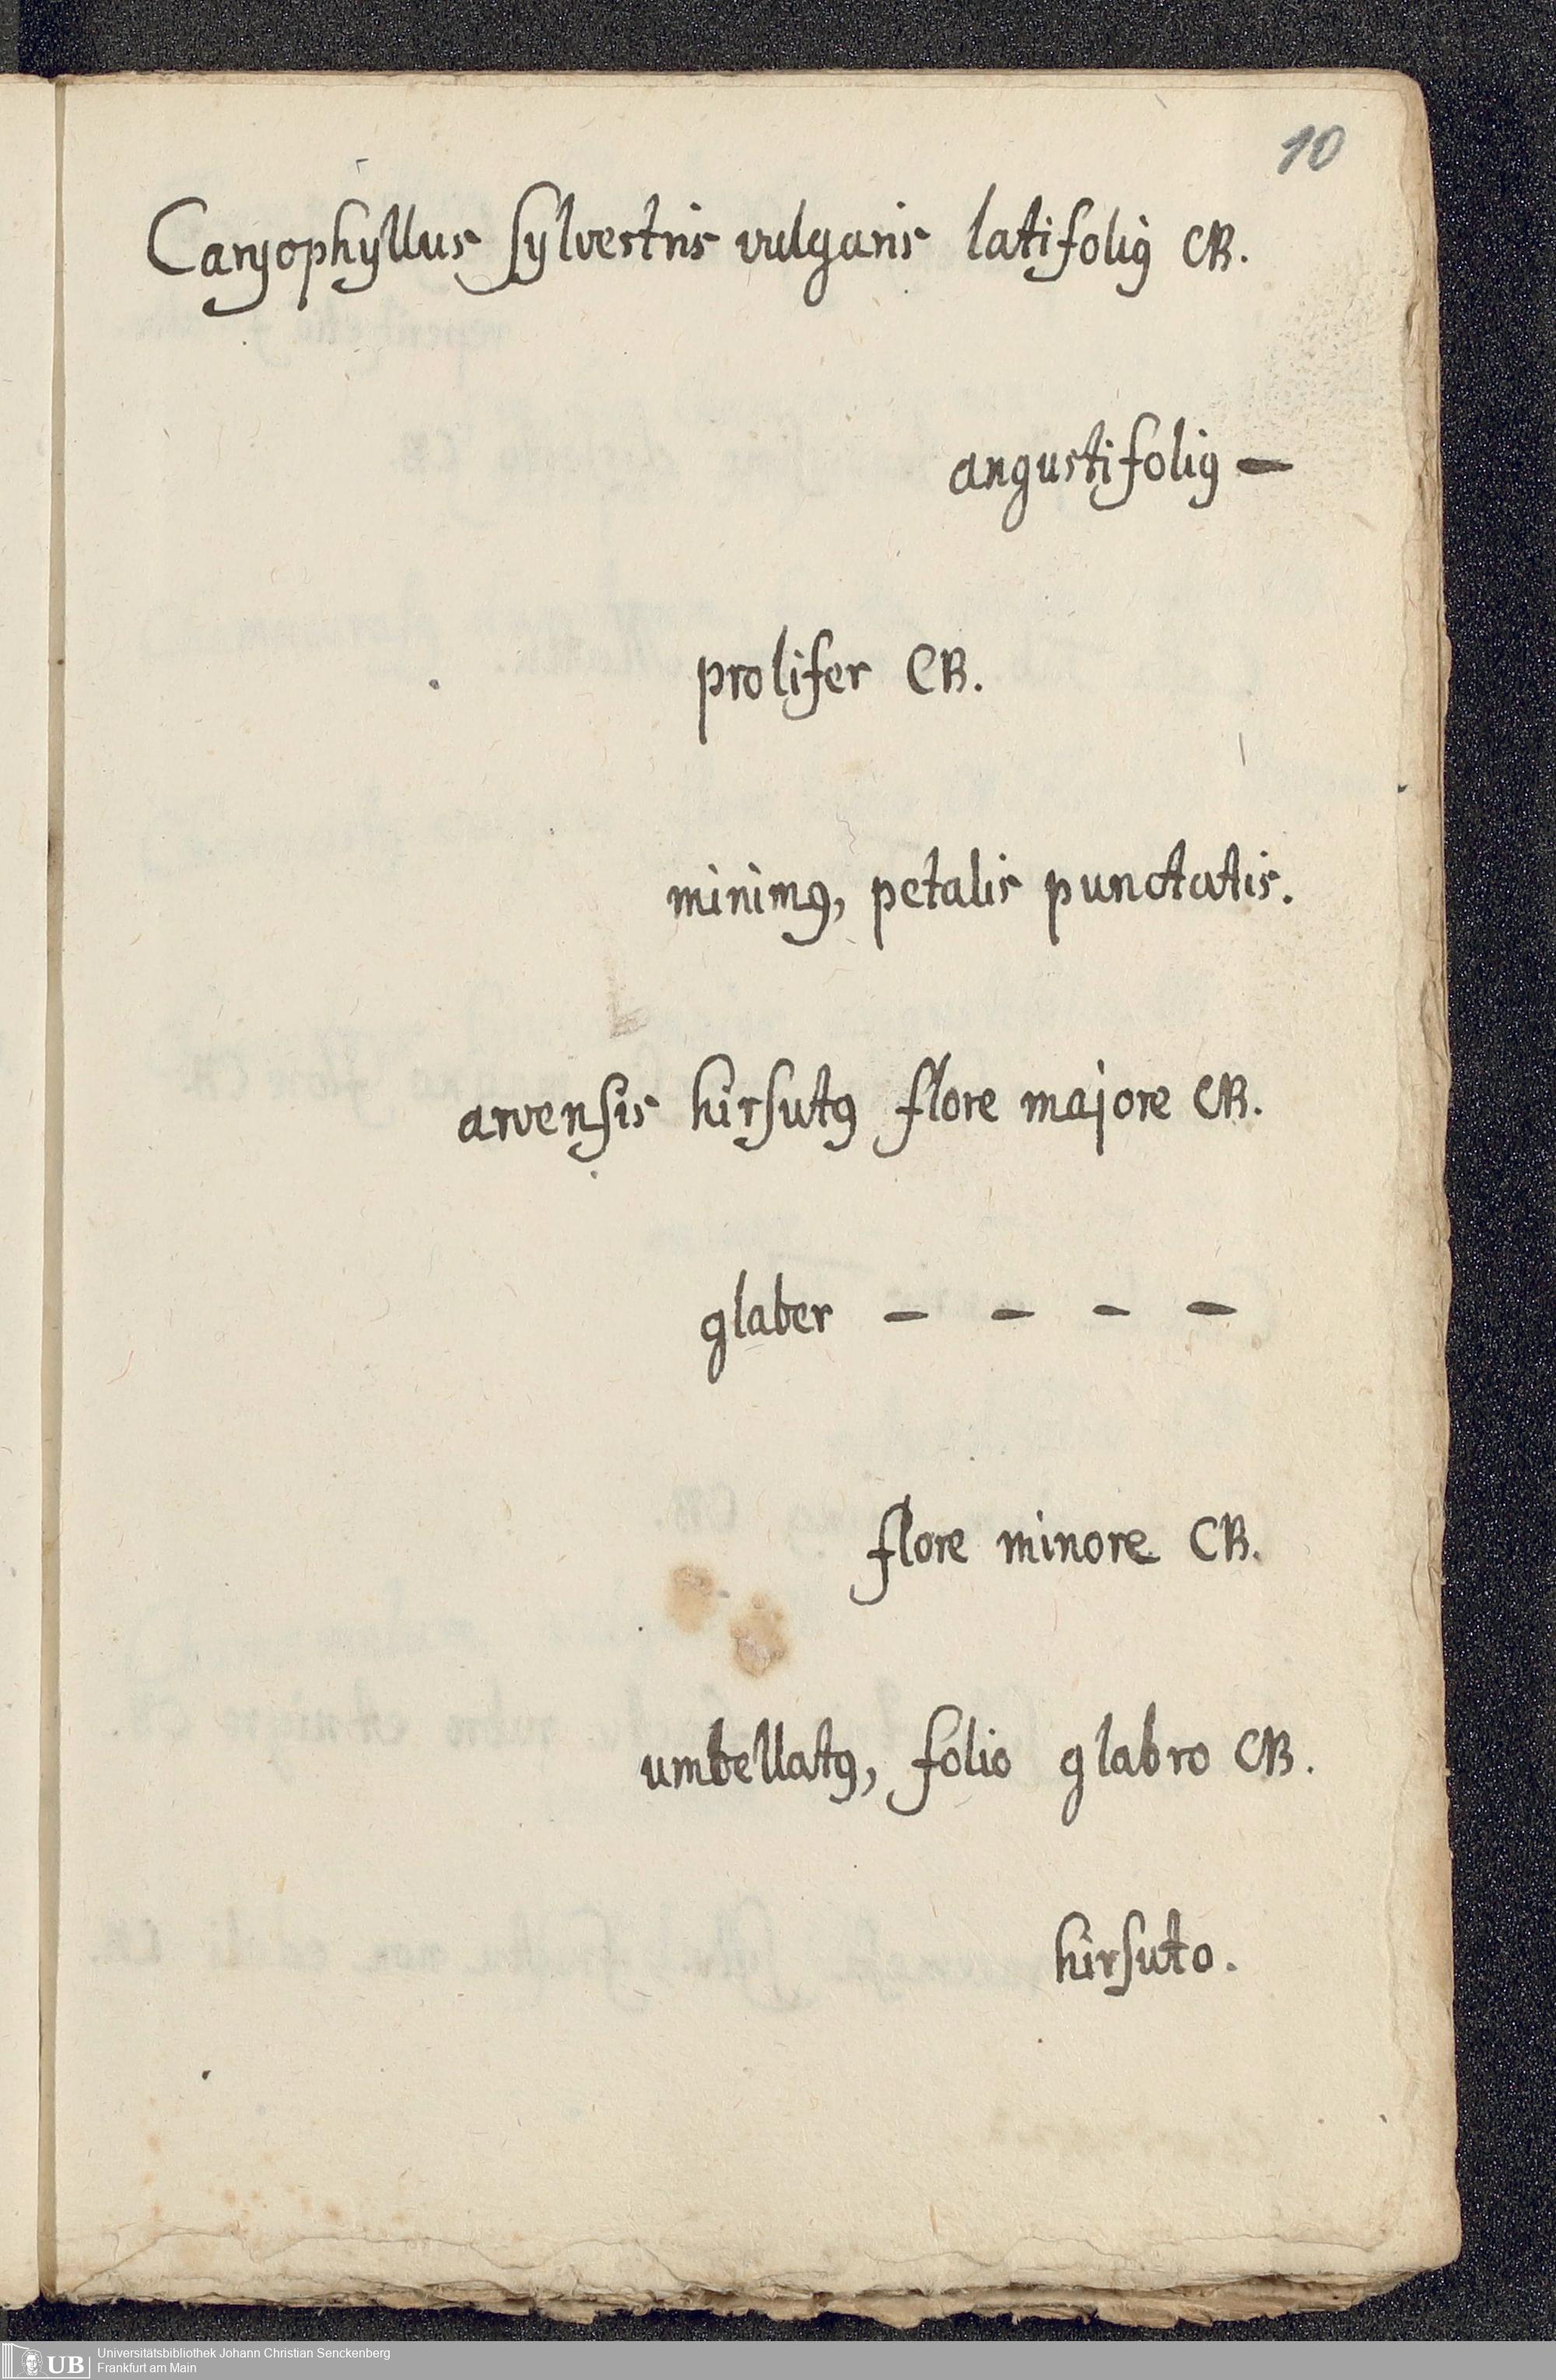 10
Caryophyllus sylvestris vulgaris latifoliꝰ CB.
angustifoliꝰ —
prolifer CB.
minimꝰ, petalis punctatis.
arvensis hirsutꝰ flore majore CB.
glaber — — — —
flore minore CB.
umbellatꝰ, folio glabro CB.
hirsuto.
UB Universitätsbibliothek Johann Christian Senckenberg
Frankfurt am Main